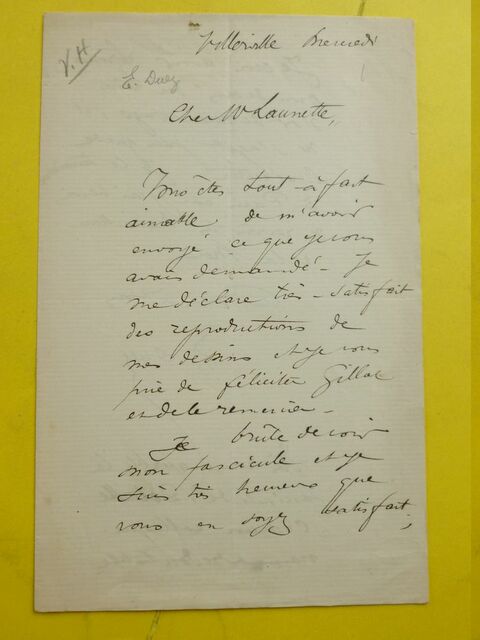 Villerville
V.H
E. Duez
Cher Mr Launette,
Vous êtes tout-à-fait
aimable de m'avoir
envoyé ce que je vous
avais demandé - Je
me déclare très-satisfait
des reproductions de
mes dessins et je vous
prie de féliciter Gillot
et de le remercier -
Je brûle de voir
mon fascicule et je
suis très heureux que
vous en soyez satisfait,